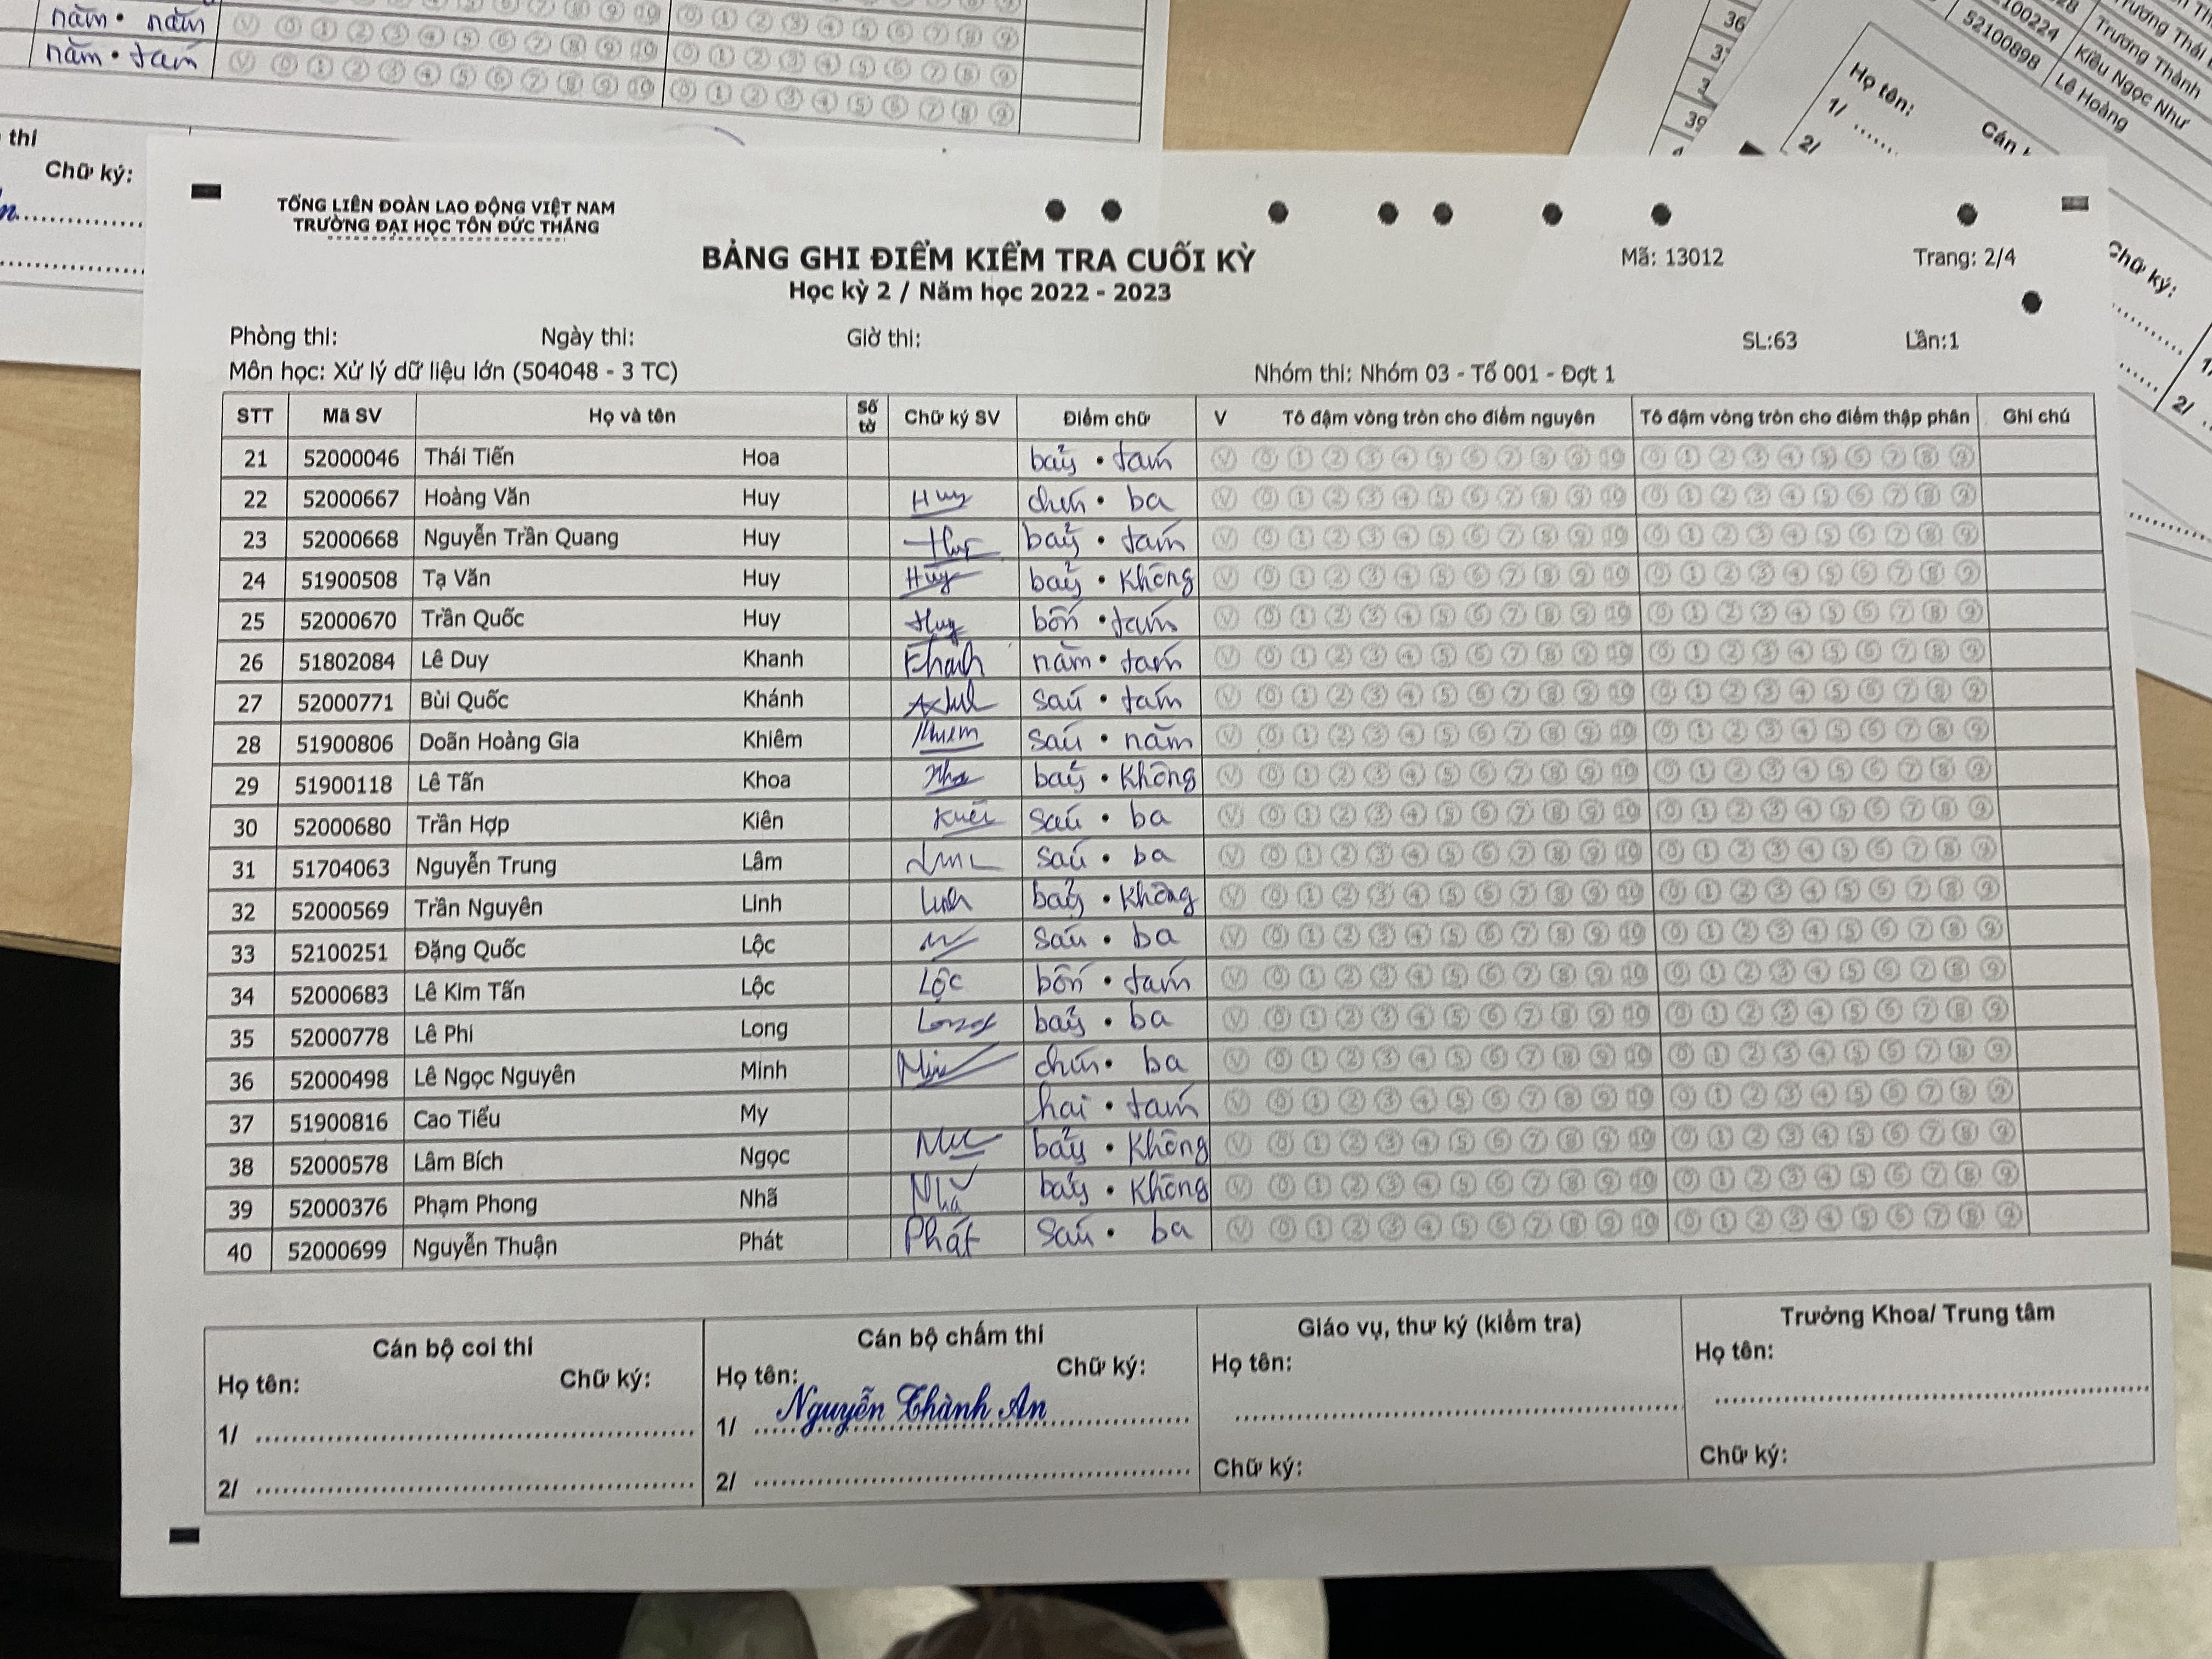 năm . năm
năm . tám
thi
Chữ ký:
36
39
100224
52100898
Trương Thái
Trương Thành
Kiều Ngọc Như
Lê Hoàng
Họ tên:
1/
2/
Chữ ký:
2/
TỔNG LIÊN ĐOÀN LAO ĐỘNG VIỆT NAM
TRƯỜNG ĐẠI HỌC TÔN ĐỨC THẮNG
BẢNG GHI ĐIỂM KIỂM TRA CUỐI KỲ
Học kỳ 2 / Năm học 2022 - 2023
Mã: 13012 Trang: 2/4
Phòng thi: Ngày thi: Giờ thi: SL:63 Lần:1
Môn học: Xử lý dữ liệu lớn (504048 - 3 TC) Nhóm thi: Nhóm 03 - Tổ 001 - Đợt 1
STT Mã SV Họ và tên Số tờ Chữ ký SV Điểm chữ V Tô đậm vòng tròn cho điểm nguyên Tô đậm vòng tròn cho điểm thập phân Ghi chú
21 52000046 Thái Tiến Hoa bảy . tám V 0 1 2 3 4 5 6 7 8 9 10 0 1 2 3 4 5 6 7 8 9
22 52000667 Hoàng Văn Huy Huy chín . ba V 0 1 2 3 4 5 6 7 8 9 10 0 1 2 3 4 5 6 7 8 9
23 52000668 Nguyễn Trần Quang Huy Huy bảy . tám V 0 1 2 3 4 5 6 7 8 9 10 0 1 2 3 4 5 6 7 8 9
24 51900508 Tạ Văn Huy Huy bảy . không V 0 1 2 3 4 5 6 7 8 9 10 0 1 2 3 4 5 6 7 8 9
25 52000670 Trần Quốc Huy Huy bốn . tám V 0 1 2 3 4 5 6 7 8 9 10 0 1 2 3 4 5 6 7 8 9
26 51802084 Lê Duy Khanh Khanh năm . tám V 0 1 2 3 4 5 6 7 8 9 10 0 1 2 3 4 5 6 7 8 9
27 52000771 Bùi Quốc Khánh sáu . tám V 0 1 2 3 4 5 6 7 8 9 10 0 1 2 3 4 5 6 7 8 9
28 51900806 Doãn Hoàng Gia Khiêm Khiem sáu . năm V 0 1 2 3 4 5 6 7 8 9 10 0 1 2 3 4 5 6 7 8 9
29 51900118 Lê Tấn Khoa bảy . không V 0 1 2 3 4 5 6 7 8 9 10 0 1 2 3 4 5 6 7 8 9
30 52000680 Trần Hợp Kiên sáu . ba V 0 1 2 3 4 5 6 7 8 9 10 0 1 2 3 4 5 6 7 8 9
31 51704063 Nguyễn Trung Lâm sáu . ba V 0 1 2 3 4 5 6 7 8 9 10 0 1 2 3 4 5 6 7 8 9
32 52000569 Trần Nguyên Linh Linh bảy . không V 0 1 2 3 4 5 6 7 8 9 10 0 1 2 3 4 5 6 7 8 9
33 52100251 Đặng Quốc Lộc sáu . ba V 0 1 2 3 4 5 6 7 8 9 10 0 1 2 3 4 5 6 7 8 9
34 52000683 Lê Kim Tấn Lộc Lộc bốn . tám V 0 1 2 3 4 5 6 7 8 9 10 0 1 2 3 4 5 6 7 8 9
35 52000778 Lê Phi Long Long bảy . ba V 0 1 2 3 4 5 6 7 8 9 10 0 1 2 3 4 5 6 7 8 9
36 52000498 Lê Ngọc Nguyên Minh chín . ba V 0 1 2 3 4 5 6 7 8 9 10 0 1 2 3 4 5 6 7 8 9
37 51900816 Cao Tiểu My hai . tám V 0 1 2 3 4 5 6 7 8 9 10 0 1 2 3 4 5 6 7 8 9
38 52000578 Lâm Bích Ngọc bảy . không V 0 1 2 3 4 5 6 7 8 9 10 0 1 2 3 4 5 6 7 8 9
39 52000376 Phạm Phong Nhã Nhã bảy . không V 0 1 2 3 4 5 6 7 8 9 10 0 1 2 3 4 5 6 7 8 9
40 52000699 Nguyễn Thuận Phát Phát sáu . ba V 0 1 2 3 4 5 6 7 8 9 10 0 1 2 3 4 5 6 7 8 9
Cán bộ coi thi
Họ tên: Chữ ký:
1/
2/
Cán bộ chấm thi
Họ tên: Chữ ký:
1/ Nguyễn Thành An
2/
Giáo vụ, thư ký (kiểm tra)
Họ tên:
Chữ ký:
Trưởng Khoa/ Trung tâm
Họ tên:
Chữ ký: